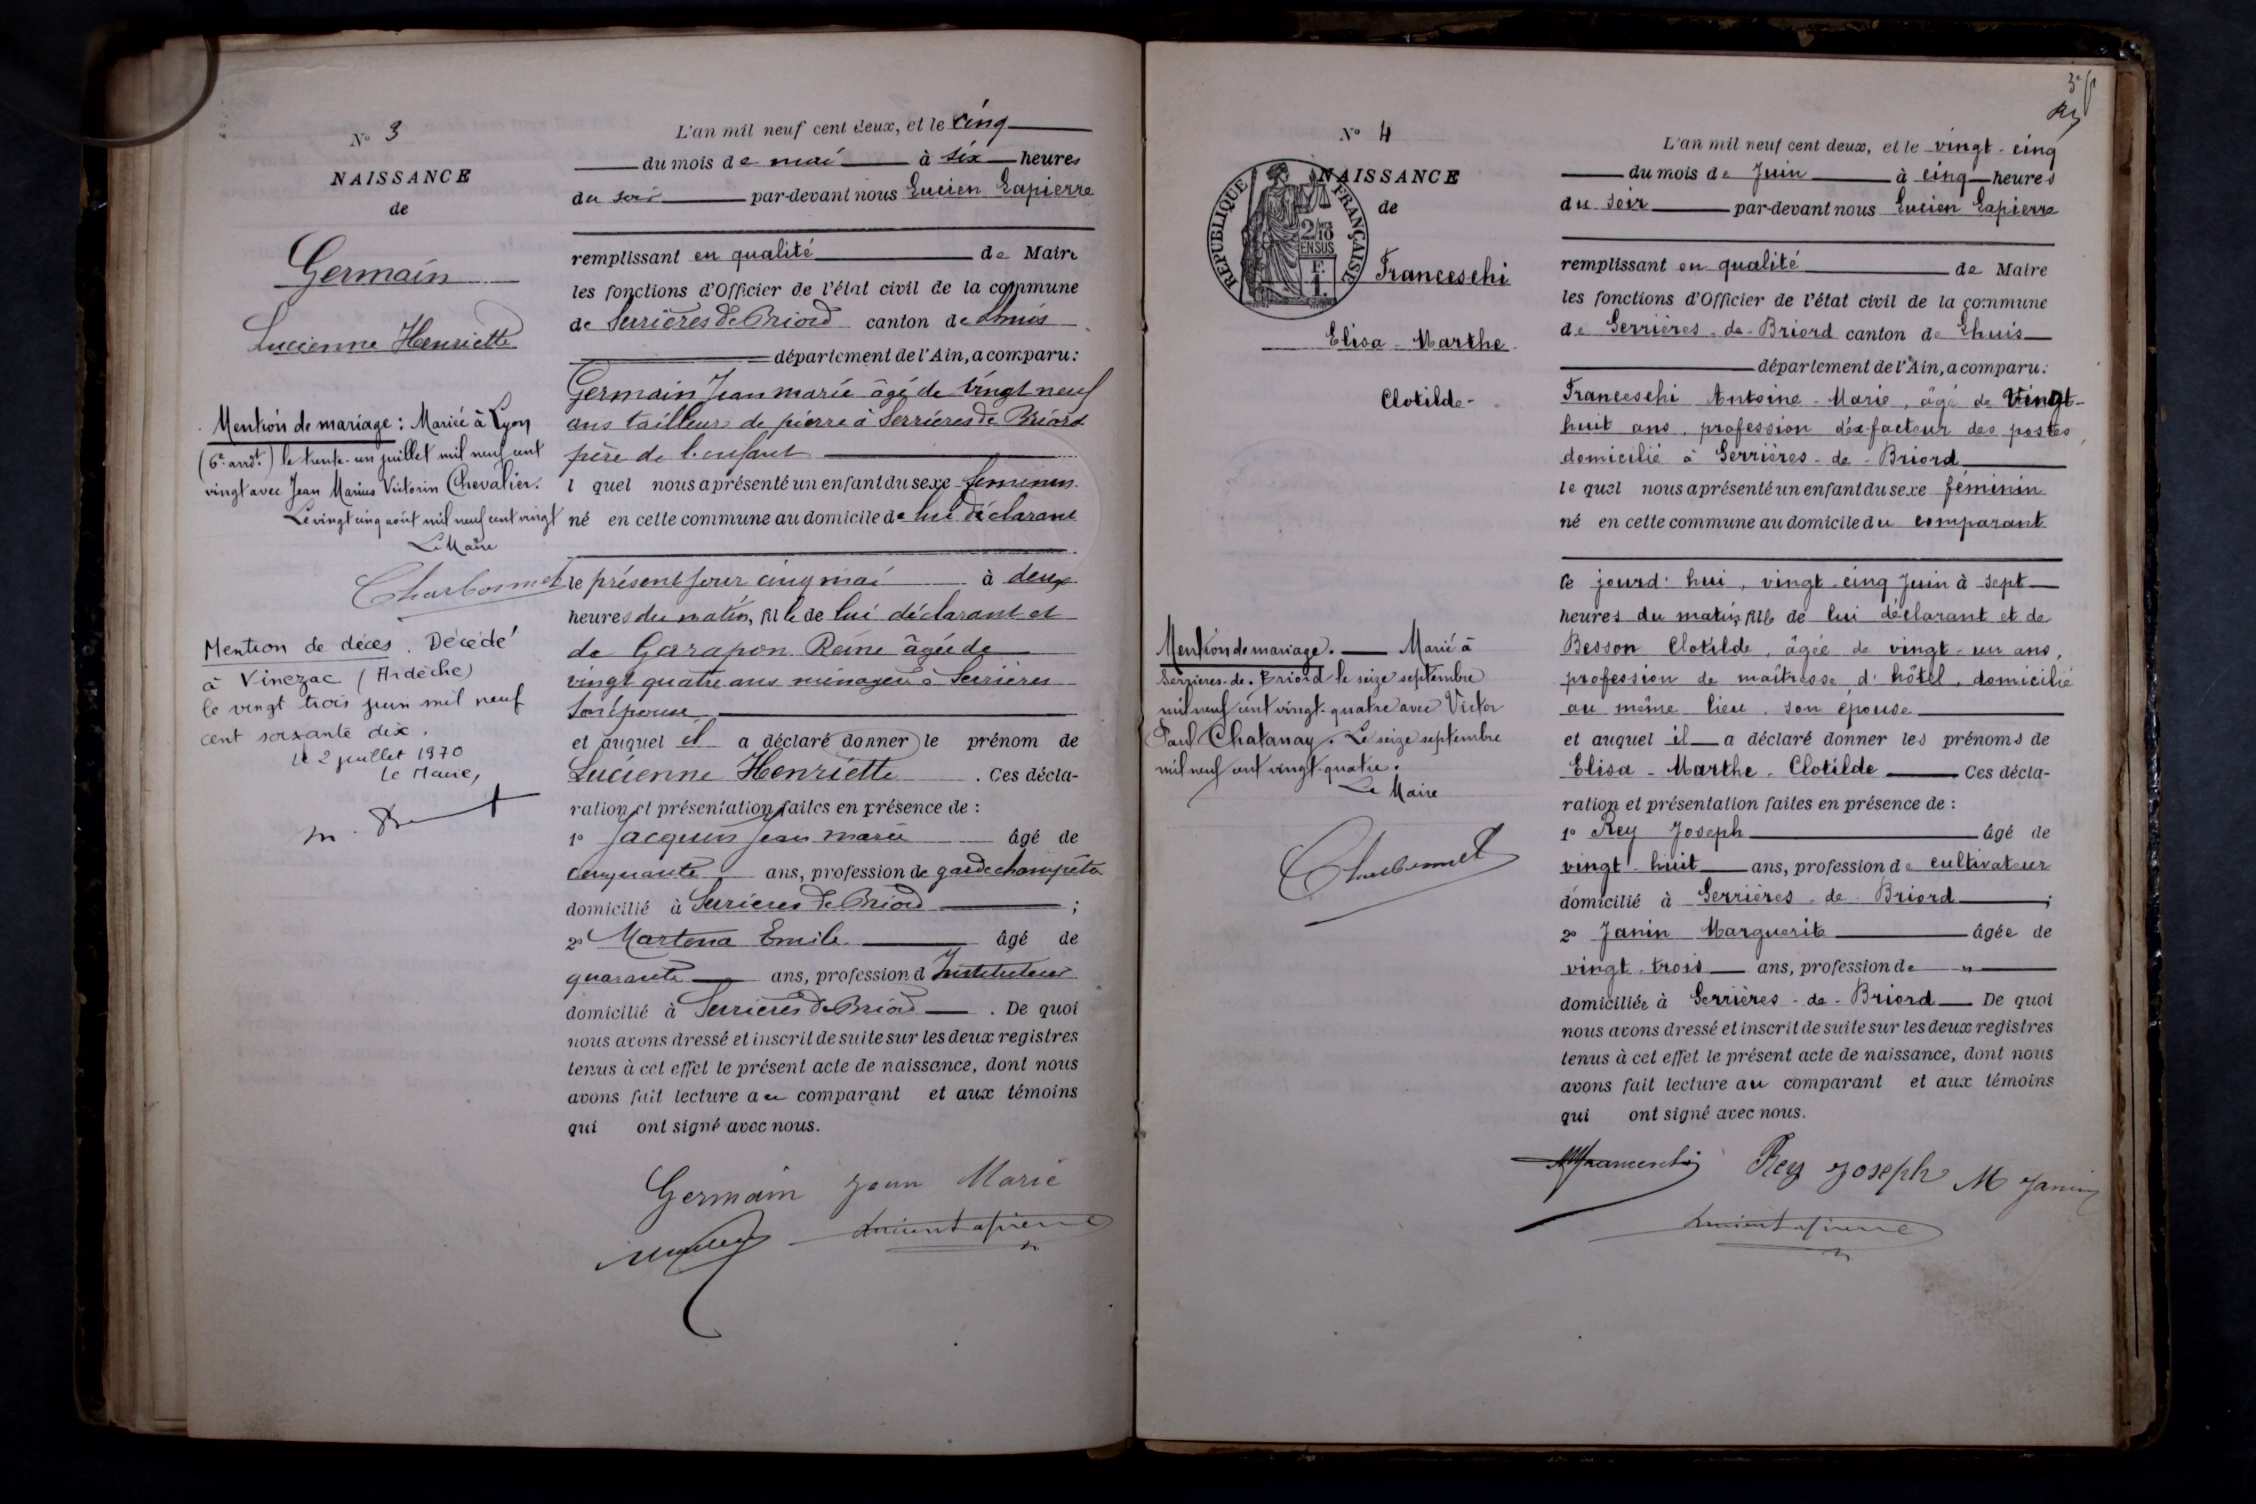 N° 3
NAISSANCE
de
Germain
Lucienne Henriette
Mention de mariage : Marié à Lyon
(6e arrdt.) le trente-un juillet mil neuf cent
vingt avec Jean Marius Victorin Chevalier.
Le vingt cinq août mil neuf cent vingt
Le Maire
Charbonnet
Mention de décès. Décédé
à Vinezac (Ardèche)
le vingt trois juin mil neuf
cent soixante dix.
Le 2 juillet 1970
Le Maire,
L'an mil neuf cent deux, et le cinq
du mois de mai à six heures
du soir par-devant nous Lucien Lapierre
remplissant en qualité de Maire
les fonctions d'Officier de l'état civil de la commune
de Serrières de Briord canton de Lhuis
département de l'Ain, a comparu :
Germain Jean marie âgé de vingt neuf
ans tailleur de pierre à Serrières de Briord
père de l'enfant
l quel nous a présenté un enfant du sexe féminin
né en cette commune au domicile de lui déclarant
le présent jour cinq mai à deux
heures du matin, fille de lui déclarant et
de Garapon Reine âgée de
vingt quatre ans ménagère à Serrières
son épouse
et auquel il a déclaré donner le prénom de
Lucienne Henriette . Ces décla-
ration et présentation faites en présence de :
1° Jacquin Jean marie âgé de
cinquante ans, profession de garde champêtre
domicilié à Serrieres de Briord ;
2° Martena Emile âgé de
quarante ans, profession d Instituteur
domicilié à Serrieres de Briord . De quoi
nous avons dressé et inscrit de suite sur les deux registres
tenus à cet effet le présent acte de naissance, dont nous
avons fait lecture au comparant et aux témoins
qui ont signé avec nous.
Germain Jean Marie
Lucien Lapierre
N° 4
NAISSANCE
de
RÉPUBLIQUE FRANÇAISE
2/10 EN SUS
Franceschi
Elisa - Marthe
Clotilde -
Mention de mariage. Marié à
Serrières-de-Briord le seize septembre
mil neuf cent vingt-quatre avec Victor
Paul Chatanay. Le seize septembre
mil neuf cent vingt-quatre.
Le Maire
Charbonnet
L'an mil neuf cent deux, et le vingt-cinq
du mois de Juin à cinq heures
du soir par-devant nous Lucien Lapierre
remplissant en qualité de Maire
les fonctions d'Officier de l'état civil de la commune
de Serrières-de-Briord canton de Lhuis
département de l'Ain, a comparu :
Franceschi Antoine-Marie, âgé de Vingt-
huit ans, profession d'ex-facteur des postes,
domicilié à Serrières-de-Briord
le quel nous a présenté un enfant du sexe féminin
né en cette commune au domicile du comparant
ce jourd'hui, vingt-cinq Juin à sept
heures du matin, fille de lui déclarant et de
Besson Clotilde, âgée de vingt-un ans,
profession de maîtresse d'hôtel, domicilié
au même lieu, son épouse
et auquel il a déclaré donner les prénoms de
Elisa-Marthe, Clotilde Ces décla-
ration et présentation faites en présence de :
1° Rey Joseph âgé de
vingt-huit ans, profession de cultivateur
domicilié à Serrières-de-Briord ;
2° Janin Marguerite âgée de
vingt-trois ans, profession de "
domiciliée à Serrières-de-Briord De quoi
nous avons dressé et inscrit de suite sur les deux registres
tenus à cet effet le présent acte de naissance, dont nous
avons fait lecture au comparant et aux témoins
qui ont signé avec nous.
Franceschi Rey Joseph M Janin
Lucien Lapierre